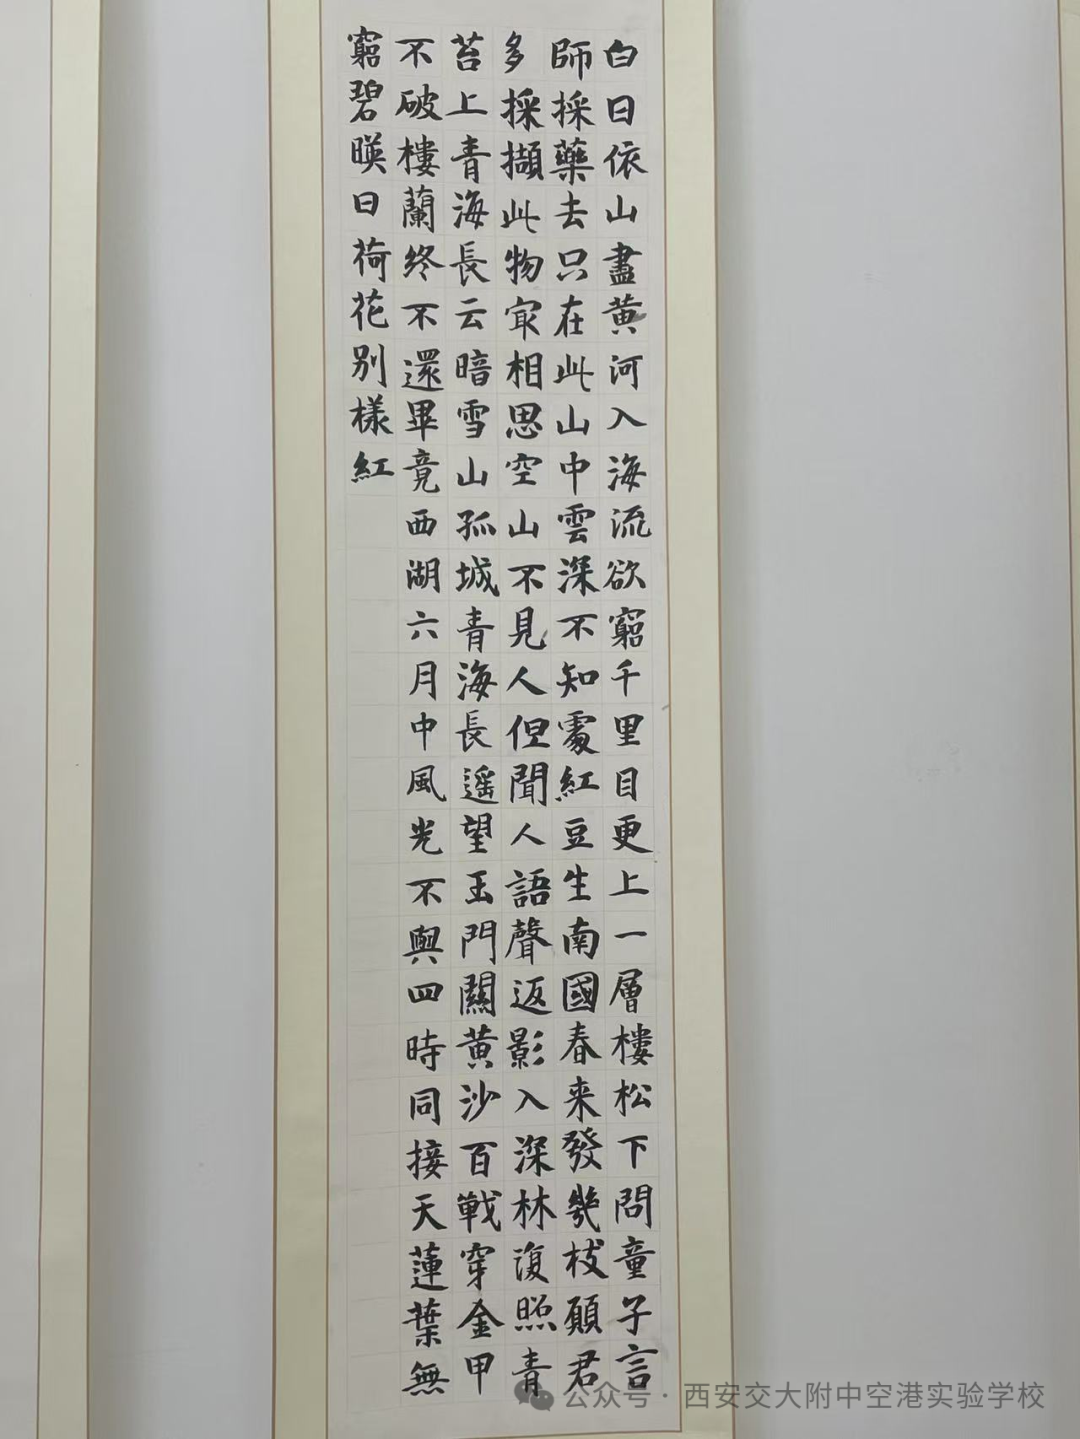 白日依山盡黄河入海流欲窮千里目更上一層樓松下問童子言
師採藥去只在此山中雲深不知處紅豆生南國春来發幾枝願君
多採擷此物冣相思空山不見人但聞人語聲返影入深林復照青
苔上青海長云暗雪山孤城青海長遥望玉門關黄沙百戰穿金甲
不破樓蘭終不還畢竟西湖六月中風光不與四時同接天蓮葉無
窮碧暎日荷花别樣紅
公众号·西安交大附中空港实验学校